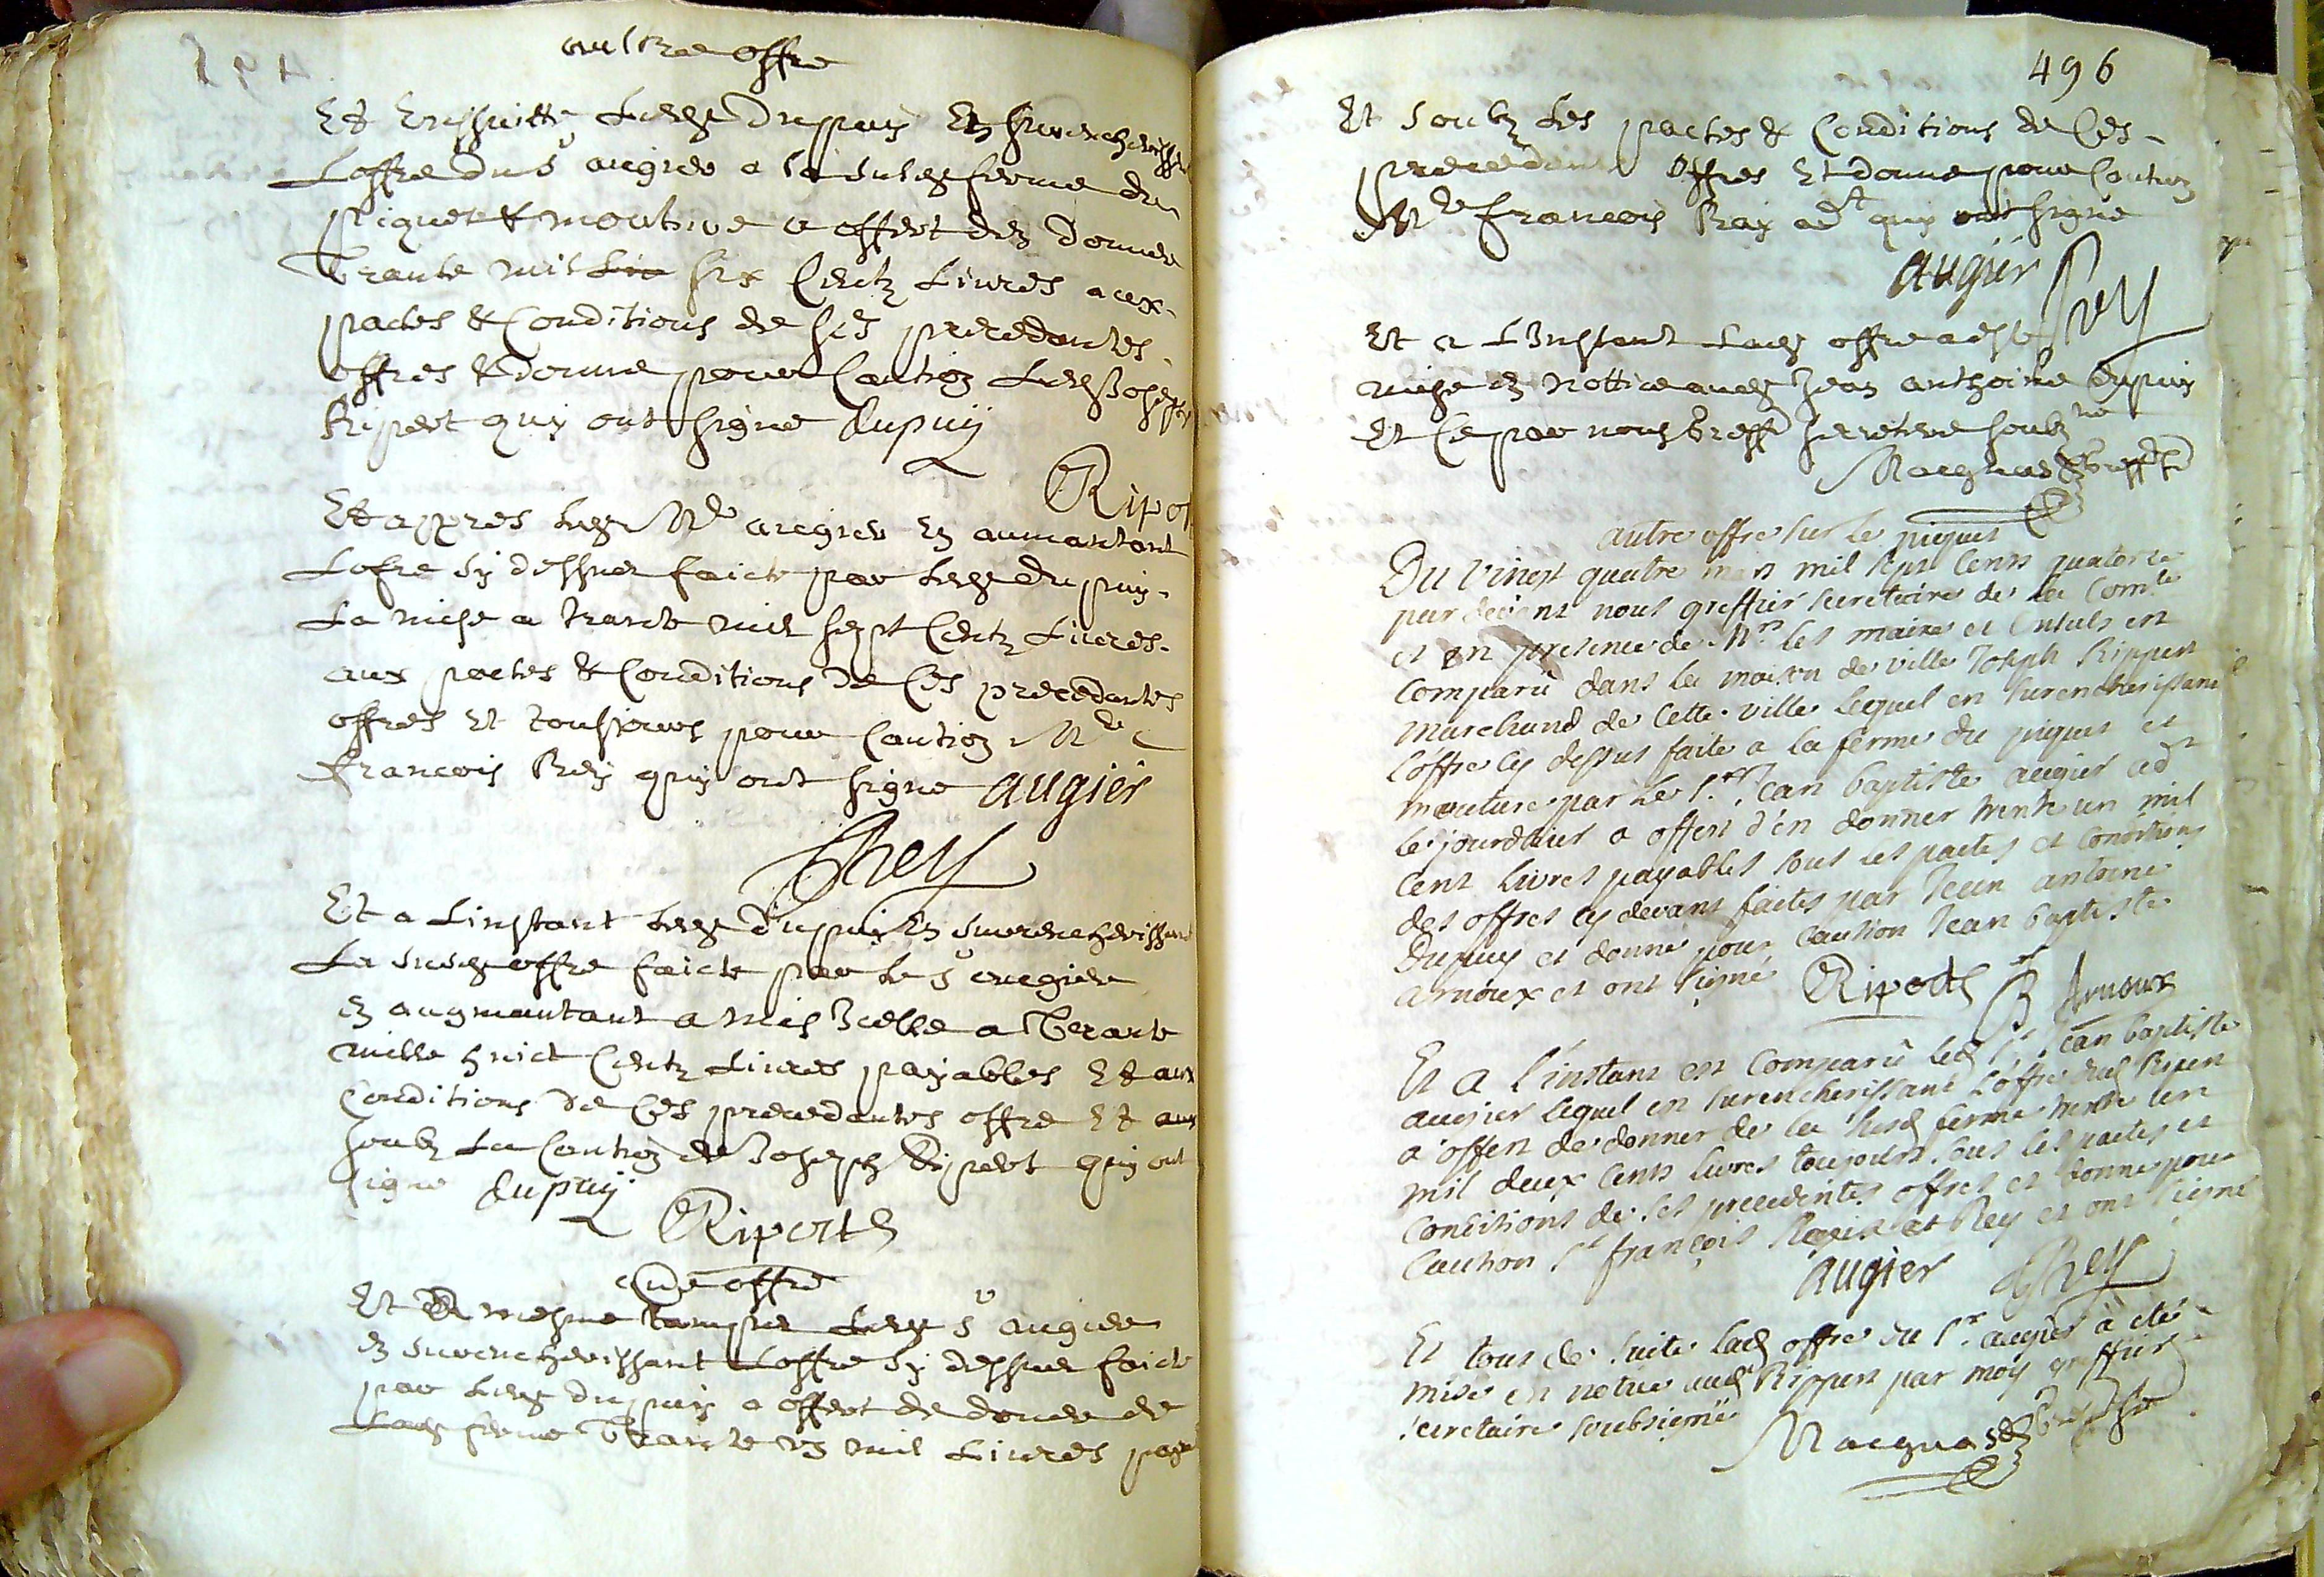 aultre offre
Et Ensuitte Ledt Dupuy En surencherissant
Loffre du Sr augier a la susd ferme du
piquet & mouture a offert den donner
Trante mil Liv six Centz Livres aux
pactes & Conditions de ses precedantes
offres & donne pour Caution Led Joseph
Ripert quy ont signe dupuÿ
Ripert
Et appres Led Me augier En aumantant
Lofre sy dessus faicte par Led dupuy
La mise a trante mil sept Centz Livres
aux pactes & Conditions de Ces precedantes
offres Et tousjours pour Caution Me
francois Rey quy ont signe augier
Rey
Et a Linstant Led Dupuy En surencherissant
La susd offre faicte par Le Sr augier
En augmantant a mis Icelle a Trante
mille huict Centz Livres payables Et aux
Conditions de Ces precedantes offre Et aux
soubz La Caution de Joseph Ripert quy ont
signe dupuy
Riperts
offre
Et A mesme tamps Led Sr augier
En surencherissant Loffre sy dessus faicte
par Led dupuy a offert de donner de
Lad ferme Trante Un mil Livres paya
496
Et soubz Les pactes & Conditions de Ces
precedantes offres Et donne pour Caution
Me francois Ray adt quy ont signe
augier
Rey
Et a L'Instant Lad offre a este
mise En nottice aud Jean anthoine dupuy
Et Ce par nous greff secretere soubz né
Maignas greff
autre offre sur le piquet
Du vingt quatre mars mil sept cents quatorze
par devant nous greffier secretaire de la Comté
et en presence de Mrs les maire et Consuls est
Comparû dans la maison de ville Joseph Rippert
marchand de Cette ville lequel en surencherissant
l'offre cy dessus faite a la ferme du piquet et
mouture par le Sr Jean baptiste augier adt
le jourdhier a offert d'en donner trente un mil
cent livres payables sous les pactes et conditions
des offres cy devant faites par Jean antoine
Dupuy et donne pour caution Jean baptiste
arnoux et ont signé Riperts JB Arnoux
Et a l'instant est Comparû led Sr Jean baptiste
augier lequel en surencherissant l'offre dud Ripert
a offert de donner de la susd ferme trente un
mil deux cents livres toujours sous les pactes et
conditions de ses precedentes offres et donne pour
caution Sr françois Rey et ont signé
augier Rey
Et tout de suite lad offre du Sr augier à été
mise en notice aud Rippert par moy greffier
secretaire soubsigné
Maignas greff